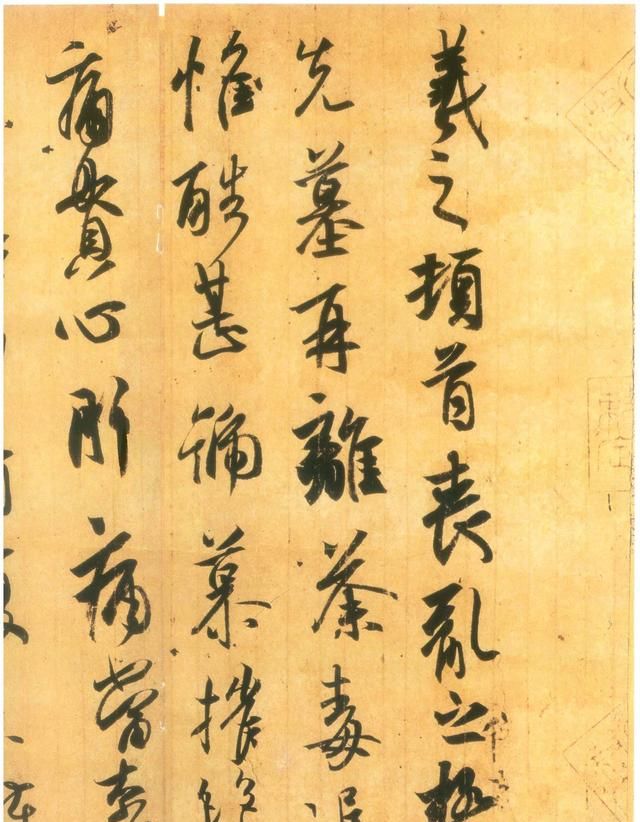 羲之頓首喪亂之極
先墓再離荼毒追
惟酷甚號慕摧絕
痛貫心肝痛當奈